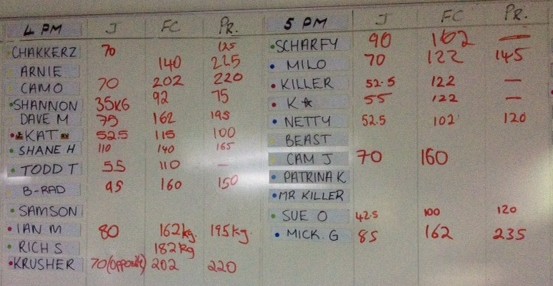 4 PM J FC PR. 5 PM J FC PR.
CHAKKERZ 70 125 SCHARFY 90 162 —
ARNIE 140 225 MILO 70 122 145
CAMO 70 202 220 KILLER 52.5 122 —
SHANNON 35KG 92 75 K★ 55 122 —
DAVE M 75 162 195 NETTY 52.5 102 120
KAT 52.5 115 100 BEAST
SHANE H 110 140 165 CAM J 70 160
TODD T 55 110 — PATRINA K
B-RAD 95 160 150 MR KILLER
SAMSON SUE O 42.5 100 120
IAN M 80 162kg 195kg MICK G 85 162 235
RICH S 182kg
KRUSHER 70 202 220